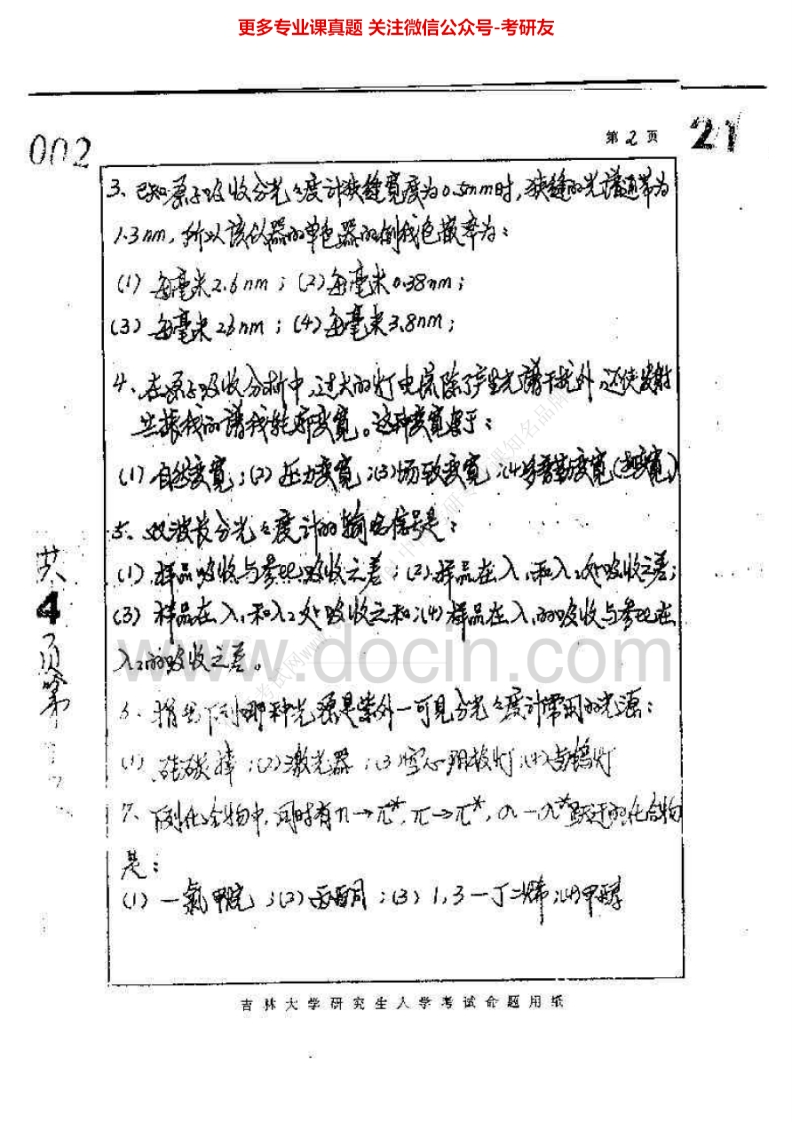 更多专业课真题 关注微信公众号-考研友
002
第 2 页
21
3、已知原子吸收分光光度计狭缝宽度为0.5mm时,狭缝的光谱通带为
1.3nm,所以该仪器的单色器的倒线色散率为:
(1) 每毫米2.6nm;(2)每毫米0.38nm;
(3) 每毫米26nm;(4)每毫米3.8nm;
4、在原子吸收分析中,过大的灯电流除了产生光谱干扰外,还使发射
共振线的谱线轮廓变宽。这种变宽属于:
(1) 自然变宽;(2) 压力变宽;(3)场致变宽;(4)多普勒变宽()
5、双波长分光光度计的输出信号是:
(1) 样品吸收与参比吸收之差;(2)样品在λ1和λ2处吸收之差;
(3) 样品在λ1和λ2处吸收之和;(4)样品在λ1的吸收与参比在
λ2的吸收之差。
6、指出下列哪种光源是紫外-可见分光光度计常用的光源:
(1) 硅碳棒;(2)激光器;(3)空心阴极灯;(4)卤钨灯
7、下列化合物中,同时有n→π*,π→π*,σ→σ*跃迁的化合物
是:
(1) 一氯甲烷;(2)丙酮;(3)1,3-丁二烯;(4)甲醇
共4页第
吉林大学研究生入学考试命题用纸
www.docin.com